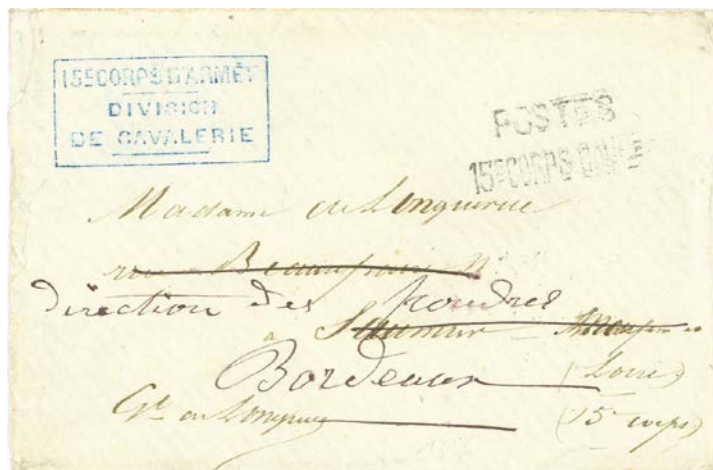 15E CORPS D'ARMÉE
DIVISION
DE CAVALERIE
POSTES
15E CORPS D'ARMÉE
Madame de Longuerue
rue Beaurepaire
direction des poudres
à Saumur
Bordeaux
(Loire)
Gal de Longuerue
(15e corps)